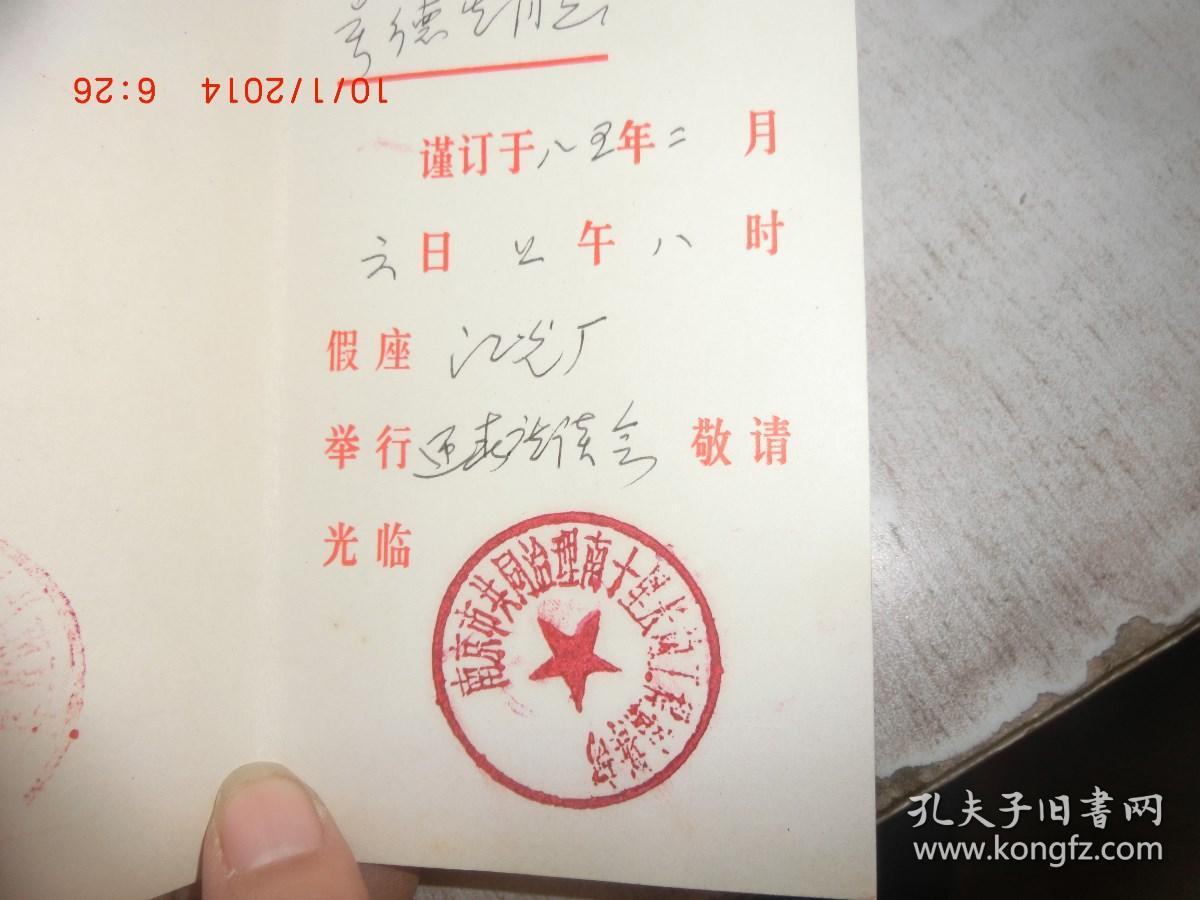 10/1/2014 6:26
谨订于八五年二月
六日上午八时
假座 江光厂
举行迎春座谈会 敬请
光临
南京市共同治理南十里长沟工程
孔夫子旧书网
www.kongfz.com